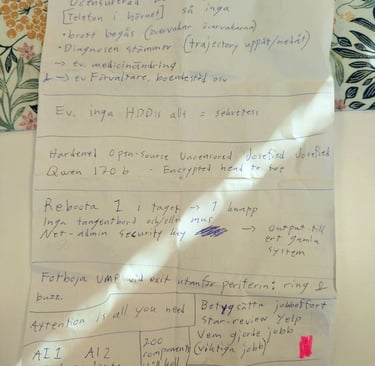 Ocensurerad
[Telefon i hörnet] så inga
• brott begås (övervakar övervakarna)
• Diagnosen stämmer (trajectory uppåt/nedåt)
→ ev. medicinändring
& → ev Förvaltare, boendestöd osv
Ev. inga HDD:s alls = sekretess
Hardened Open-Source Uncensored Josefied Josefied
Qwen 120b - Encrypted head to toe
Reboota 1 i taget → 1 knapp
Inga tangentbord och/eller mus
Net-admin security key → Output till
ert gamla
system
Fotboja VMP vid exit utanför periferin: ring &
buzz.
Attention is all you need
Betygsätta jobbettort
Star-review Yelp
Vem gjorde jobb
(viktiga jobb)
AI 1 AI 2
200
components